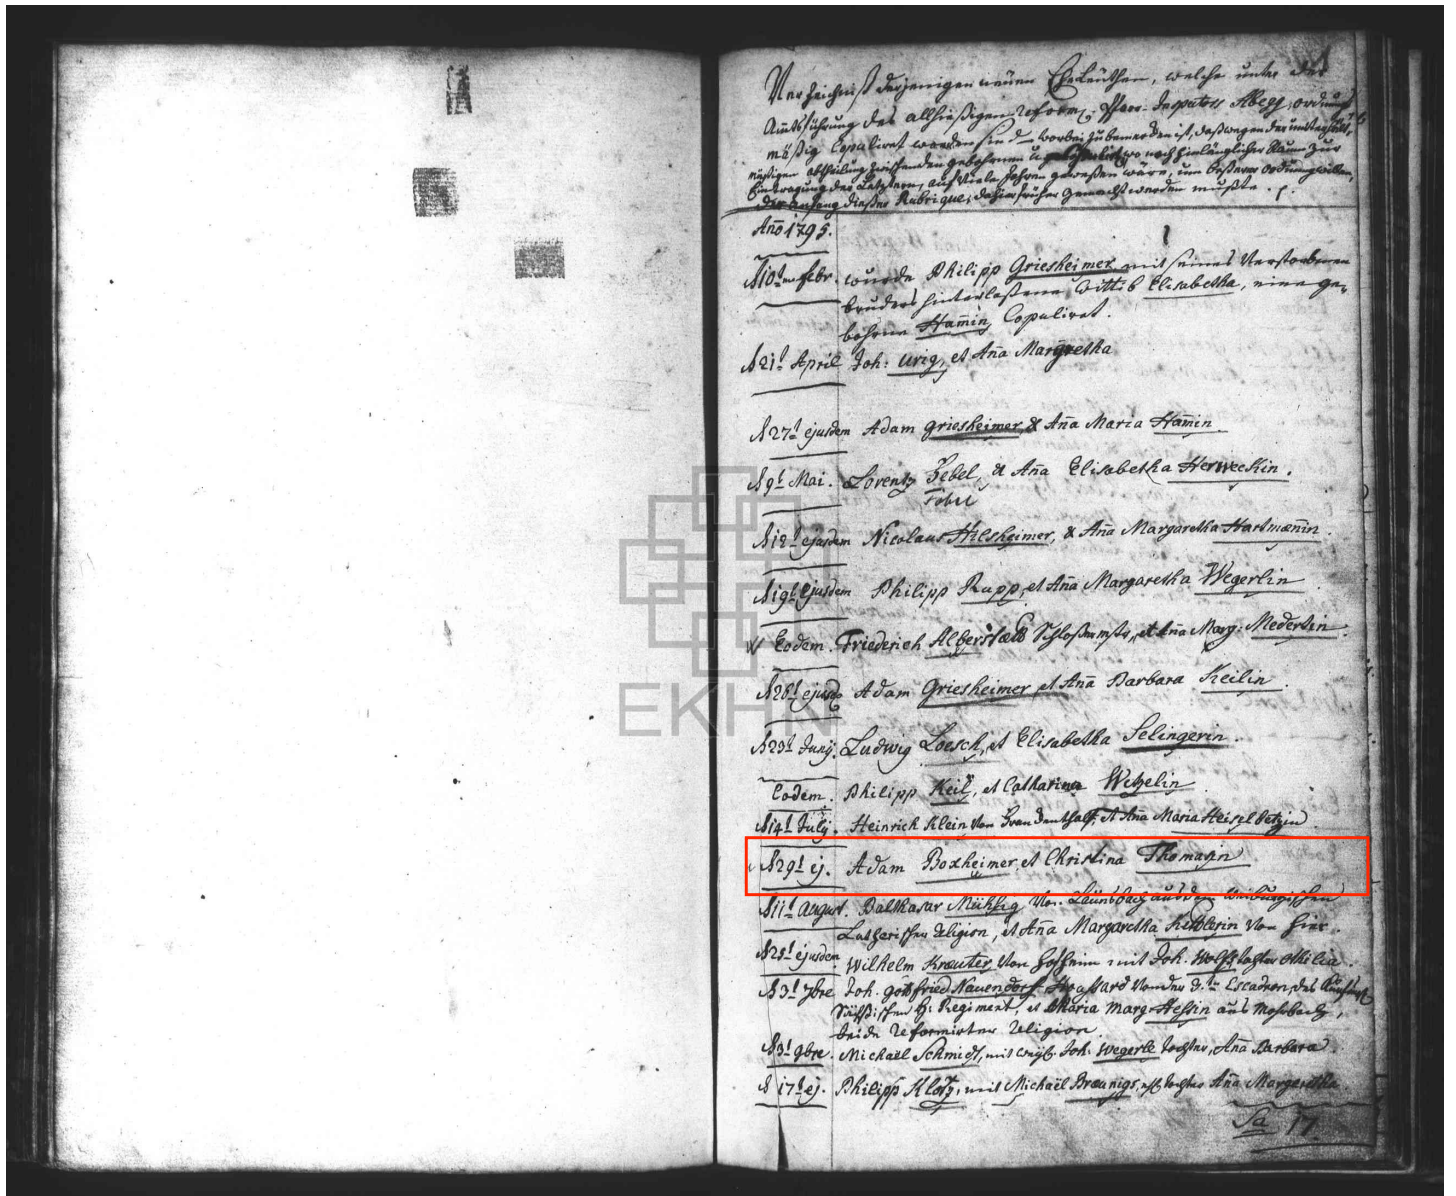 Verzeichniß derjenigen neuen Eheleuthen, welche unter der
Amtsführung des allhießigen reform. Pfarr- Inspectors Abegg, ordnungs
mäßig Copulirt worden sind _ worbei zu bemerken ist, daß wegen der
abtheilung zwischen den gebohrnen u. wo noch hinlänglicher Raum zur
Eintragung der Letztern, auf viele Jahren gewesen wäre, um beßerer ordnung willen,
der anfang dießer Rubrique, dahier früher gemacht werden mußte.
Año 1795.
10t Febr. wurde Philipp Griesheimer mit seines Verstorbenen
bruders hinterlaßene Wittib Elisabetha, eine ge-
bohrne Ham̄in, Copulirt.
21t April Joh: Urig, et Aña Margretha
27t ejusdem Adam Griesheimer & Aña Maria Ham̄in.
9t Mai. Lorentz Zebel, & Aña Elisabetha Herweckin.
12t ejusdem Nicolaus Hilsheimer, & Aña Margaretha Hartmæñin.
19t Ejusdem Philipp Rupp, et Aña Margaretha Wegerlin
Eodem. Friederich Schloßermstr, et Aña Marg: Medertin.
28t ejusd Adam Griesheimer et Aña Barbara Keilin.
23t Junÿ. Ludwig Loesch, et Elisabetha Selingerin.
Eodem. Philipp Keil, et Catharina Wetzelin
14t Julÿ. Heinrich Klein von et Aña Maria Heiselbetzin
29t ej. Adam Boxheimer et Christina Thomasin
11t August. Balthasar Mühsig Von Launsbach aus dem Weilburgischen
Lutherischer Religion, et Aña Margaretha Kettlerin von hier.
25t ejusdem Wilhelm Kreuter, von Hofheim mit Joh. Wolfs tochter Othilia.
3t 7bre Joh. Gottfried Nauendorf Houssard von der Escadron, des
Sächsischen H: Regiment, et Maria Marg: Hessin aus Mosbach,
beide Reformirter Religion.
3t 9bre. Michaël Schmidt, mit Joh. Wegerle tochter, Aña Barbara.
17t ej. Philipp Klotz, mit Michaël Breunigs, tochter Aña Margaretha.
Sa 17.
EKHN